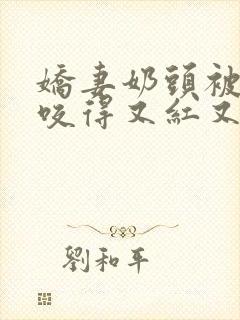 嬌妻奶頭被
咬得又紅又
劉和平